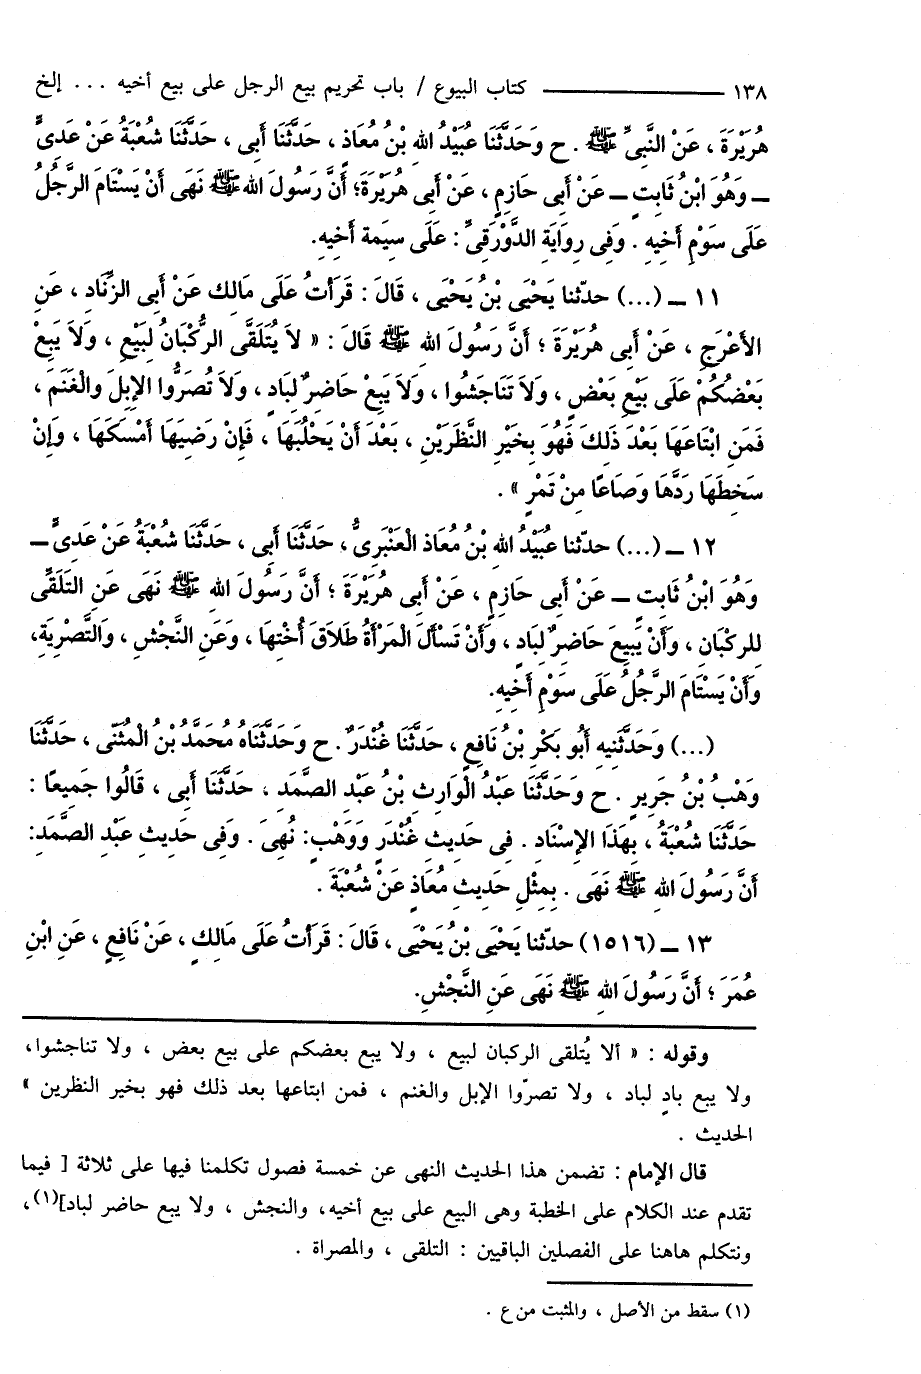 ١٣٨ ـــــــــــــــــــ كتاب البيوع / باب تحريم بيع الرجل على بيع أخيه ... إلخ
هُرَيْرَةَ ، عَنْ النَّبِىِّ ﷺ . ح وَحَدَّثَنَا عُبَيْدُ اللهِ بْنُ مُعَاذٍ ، حَدَّثَنَا أَبِى ، حَدَّثَنَا شُعْبَةُ عَنْ عَدِىٍّ
ـ وَهُوَ ابْنُ ثَابِتٍ ـ عَنْ أَبِى حَازِمٍ ، عَنْ أَبِى هُرَيْرَةَ؛ أَنَّ رَسُولَ اللهِ ﷺ نَهَى أَنْ يَسْتَامَ الرَّجُلُ
عَلَى سَوْمِ أَخِيهِ . وَفِى رِوَايَةِ الدَّوْرَقِىِّ : عَلَى سِيمَةِ أَخِيهِ.
١١ ـ (...) حدّثنا يَحْيَى بْنُ يَحْيَى ، قَالَ : قَرَأتُ عَلَى مَالِكٍ عَنْ أَبِى الزِّنَادِ ، عَنِ
الأَعْرَجِ ، عَنْ أَبِى هُرَيْرَةَ ؛ أَنَّ رَسُولَ اللهِ ﷺ قَالَ : « لاَ يُتَلَقَّى الرُّكْبَانُ لِبَيْعٍ ، وَلاَ يَبِعْ
بَعْضُكُمْ عَلَى بَيْعِ بَعْضٍ ، وَلاَ تَنَاجَشُوا ، وَلاَ يَبِعْ حَاضِرٌ لِبَادٍ ، وَلاَ تُصَرُّوا الإِبِلَ وَالْغَنَمَ ،
فَمَنِ ابْتَاعَهَا بَعْدَ ذَلِكَ فَهُوَ بِخَيْرِ النَّظَرَيْنِ ، بَعْدَ أَنْ يَحْلُبَهَا ، فَإِنْ رَضِيَهَا أَمْسَكَهَا ، وَإِنْ
سَخِطَهَا رَدَّهَا وَصَاعًا مِنْ تَمْرٍ » .
١٢ ـ (...) حدّثنا عُبَيْدُ اللهِ بْنُ مُعَاذٍ الْعَنْبَرِىُّ ، حَدَّثَنَا أَبِى ، حَدَّثَنَا شُعْبَةُ عَنْ عَدِىٍّ ـ
وَهُوَ ابْنُ ثَابِتٍ ـ عَنْ أَبِى حَازِمٍ ، عَنْ أَبِى هُرَيْرَةَ ؛ أَنَّ رَسُولَ اللهِ ﷺ نَهَى عَنِ التَلَقِّى
لِلرُكْبَانِ ، وَأَنْ يَبِيعَ حَاضِرٌ لِبَادٍ ، وَأَنْ تَسْأَلَ الْمَرْأَةُ طَلاَقَ أُخْتِهَا ، وَعَنِ النَّجْشِ ، وَالتَّصْرِيَةِ،
وَأَنْ يَسْتَامَ الرَّجُلُ عَلَى سَوْمِ أَخِيهِ.
(...) وَحَدَّثَنِيهِ أَبُو بَكْرِ بْنُ نَافِعٍ ، حَدَّثَنَا غُنْدَرٌ . ح وَحَدَّثَنَاهُ مُحَمَّدُ بْنُ الْمُثَنَّى ، حَدَّثَنَا
وَهْبُ بْنُ جَرِيرٍ . ح وَحَدَّثَنَا عَبْدُ الْوَارِثِ بْنُ عَبْدِ الصَّمَدِ ، حَدَّثَنَا أَبِى ، قَالُوا جَمِيعًا :
حَدَّثَنَا شُعْبَةُ ، بِهَذَا الإِسْنَادِ . فِى حَدِيثِ غُنْدَرٍ وَوَهْبٍ: نُهِىَ . وَفِى حَدِيثِ عَبْدِ الصَّمَدِ:
أَنَّ رَسُولَ اللهِ ﷺ نَهَى . بِمِثْلِ حَدِيثِ مُعَاذٍ عَنْ شُعْبَةَ .
١٣ ـ (١٥١٦) حدّثنا يَحْيَى بْنُ يَحْيَى ، قَالَ : قَرَأتُ عَلَى مَالِكٍ ، عَنْ نَافِعٍ ، عَنِ ابْنِ
عُمَرَ ؛ أَنَّ رَسُولَ اللهِ ﷺ نَهَى عَنِ النَّجْشِ.
وقوله : « ألا يُتلقى الركبان لبيع ، ولا يبع بعضكم على بيع بعض ، ولا تناجشوا،
ولا يبع بادٍ لباد ، ولا تصرّوا الإبل والغنم ، فمن ابتاعها بعد ذلك فهو بخير النظرين »
الحديث .
قال الإمام : تضمن هذا الحديث النهى عن خمسة فصول تكلمنا فيها على ثلاثة [ فيما
تقدم عند الكلام على الخطبة وهى البيع على بيع أخيه، والنجش ، ولا يبع حاضر لباد](١)،
ونتكلم هاهنا على الفصلين الباقيين : التلقى ، والمصراة .
(١) سقط من الأصل ، والمثبت من ع .